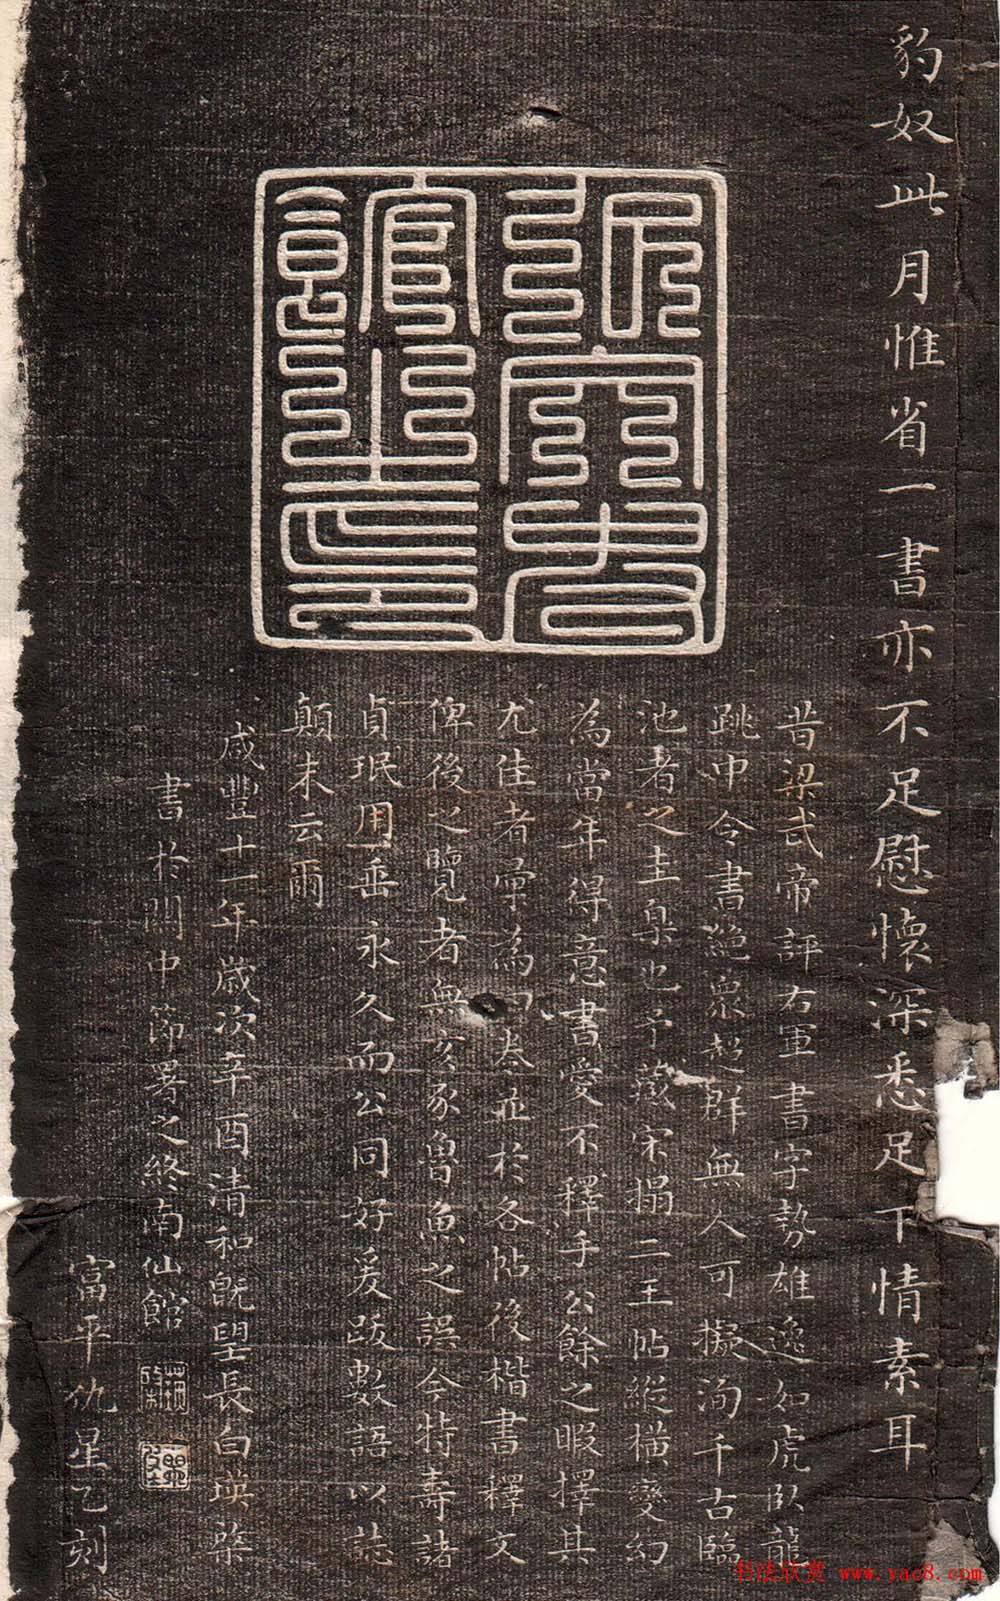 豹奴此月惟省一書亦不足慰懷深悉足下情素耳
昔梁武帝評右軍書字勢雄逸如虎卧龍
跳中令書絕衆超群無人可擬洵千古臨
池者之圭臬也予藏宋搨二王帖縱橫變幻
為當年得意書愛不釋手公餘之暇擇其
尤佳者彙為並於各帖後楷書釋文
俾後之覽者無亥豕魯魚之誤今特壽諸
貞珉用垂永久而公同好爰跋數語以誌
顛末云爾
咸豐十一年歲次辛酉清和旣望長白瑛棨
書於關中節署之終南仙館
富平仇星乙刻
书法欣赏 www.yac8.com